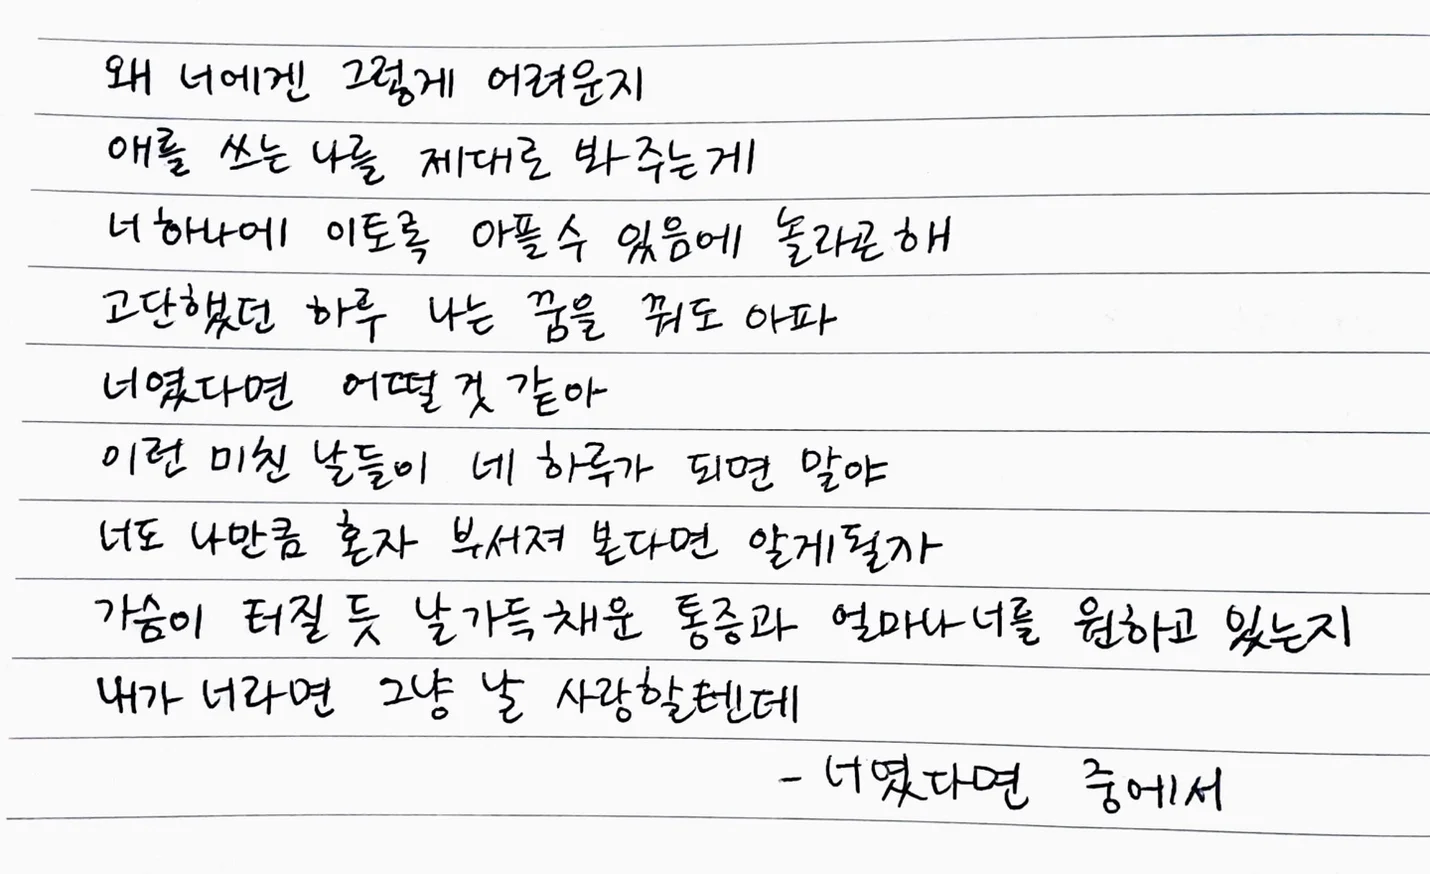 왜 너에겐 그렇게 어려운지
애를 쓰는 나를 제대로 봐 주는게
너 하나에 이토록 아플 수 있음에 놀라곤 해
고단했던 하루 나는 꿈을 꿔도 아파
너였다면 어떨 것 같아
이런 미친 날들이 네 하루가 되면 말야
너도 나만큼 혼자 부서져 본다면 알게될까
가슴이 터질 듯 날 가득 채운 통증과 얼마나 너를 원하고 있는지
내가 너라면 그냥 날 사랑할텐데
- 너였다면 중에서